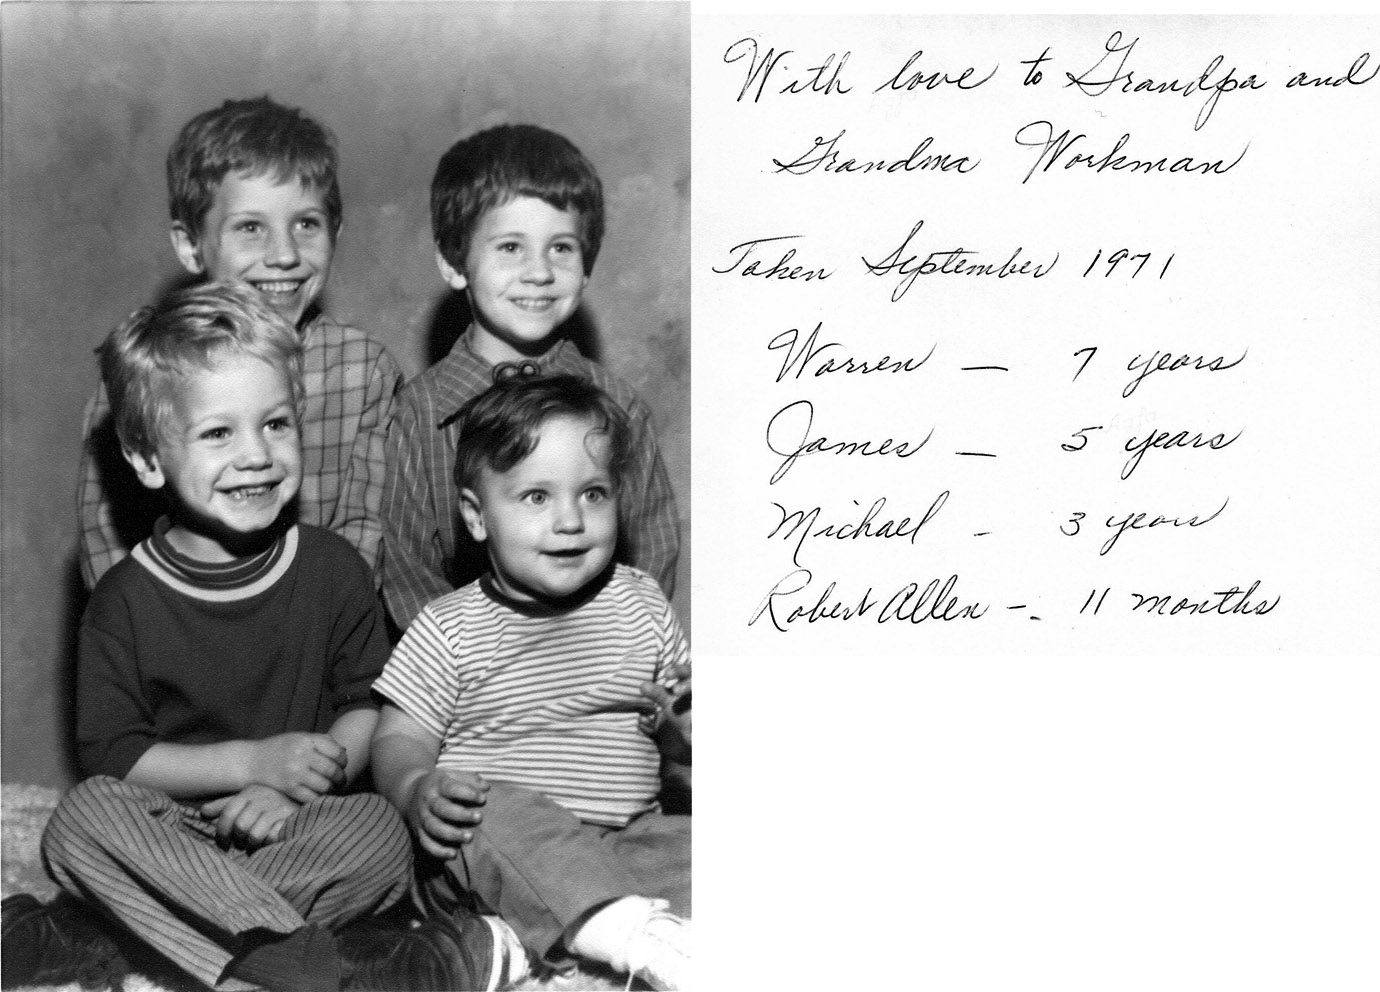 With love to Grandpa and
Grandma Workman
Taken September 1971
Warren — 7 years
James — 5 years
Michael - 3 years
Robert Allen -. 11 months